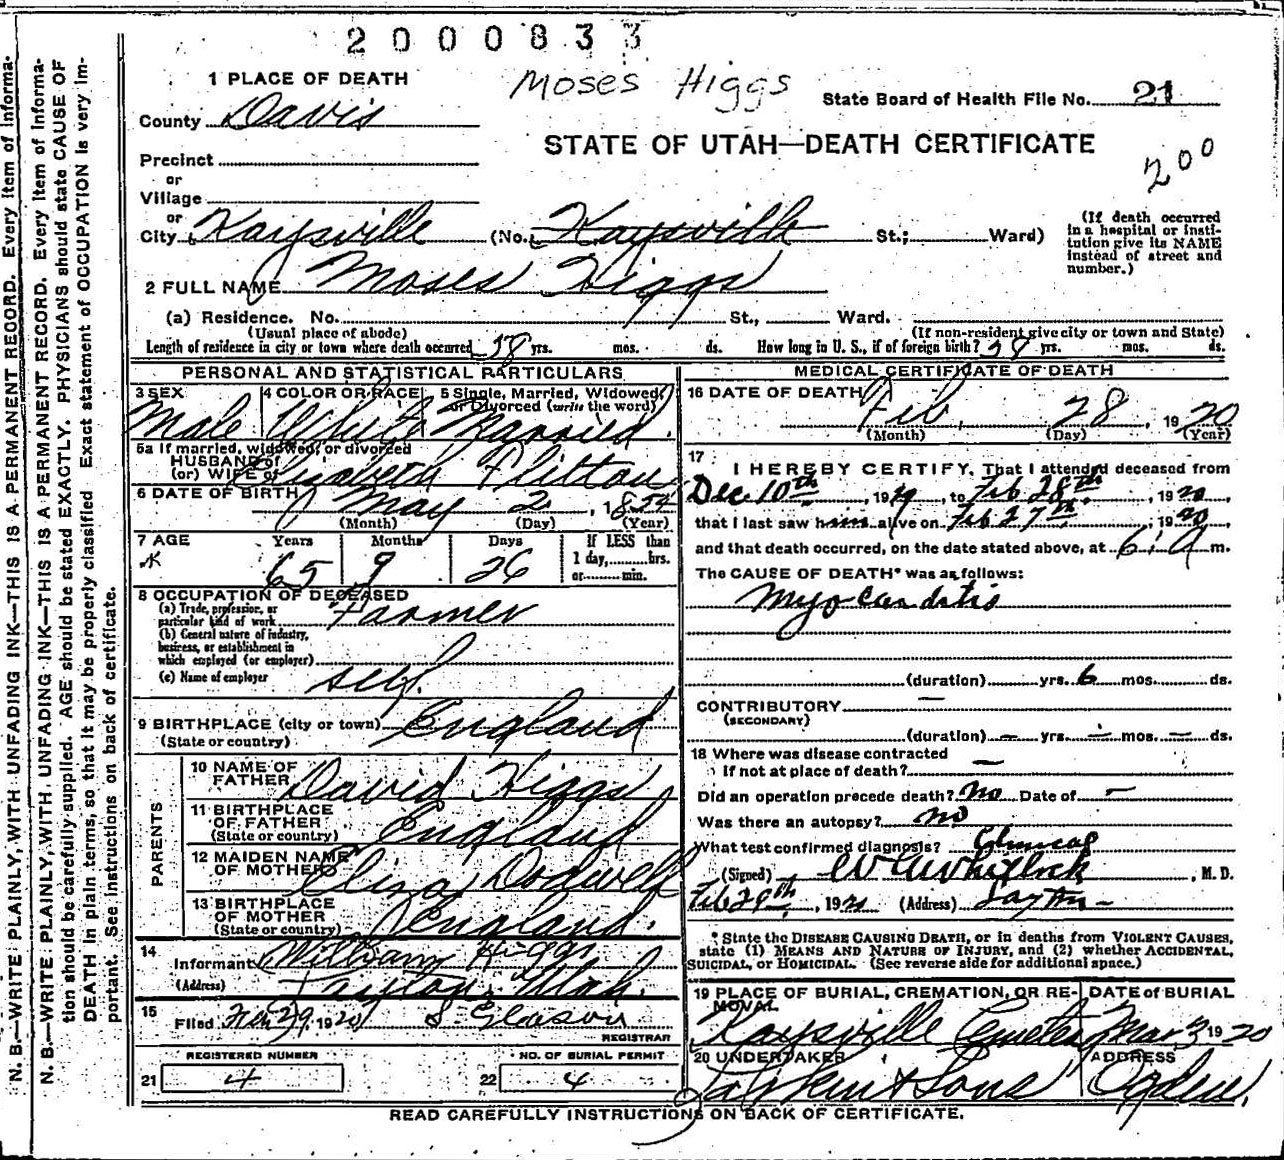 2000833
Moses Higgs
1 PLACE OF DEATH
State Board of Health File No. 21
County Davis
STATE OF UTAH—DEATH CERTIFICATE
200
Precinct
or
Village
or
City Kaysville (No. Kaysville St.; Ward)
(If death occurred in a hospital or institution give its NAME instead of street and number.)
2 FULL NAME Moses Higgs
(a) Residence. No. St., Ward.
(Usual place of abode) (If non-resident give city or town and State)
Length of residence in city or town where death occurred 58 yrs. mos. ds. How long in U. S., if of foreign birth? 58 yrs. mos. ds.
PERSONAL AND STATISTICAL PARTICULARS
3 SEX Male
4 COLOR OR RACE White
5 Single, Married, Widowed, or Divorced (write the word) Married
5a If married, widowed, or divorced
HUSBAND of
(or) WIFE of Elizabeth Flitton
6 DATE OF BIRTH May 2, 1854
(Month) (Day) (Year)
7 AGE Years Months Days If LESS than
1 day,......hrs.
or......min.
65 9 26
8 OCCUPATION OF DECEASED
(a) Trade, profession, or particular kind of work Farmer
(b) General nature of industry, business, or establishment in which employed (or employer)
(c) Name of employer self
9 BIRTHPLACE (city or town) England
(State or country)
PARENTS
10 NAME OF FATHER David Higgs
11 BIRTHPLACE OF FATHER England
(State or country)
12 MAIDEN NAME OF MOTHER Eliza Dodwell
13 BIRTHPLACE OF MOTHER England.
(State or country)
14
Informant William Higgs
(Address) Layton, Utah.
15
Filed Feb 29, 1920 S. Gleason
REGISTRAR
REGISTERED NUMBER NO. OF BURIAL PERMIT
21 4 22 4
MEDICAL CERTIFICATE OF DEATH
16 DATE OF DEATH
Feb, 28, 1920
(Month) (Day) (Year)
17
I HEREBY CERTIFY, That I attended deceased from
Dec 10th, 1919, to Feb 28th, 1920,
that I last saw him alive on Feb 27th, 1920
and that death occurred, on the date stated above, at 6: A m.
The CAUSE OF DEATH* was as follows:
Myocarditis
(duration) yrs. 6 mos. ds.
CONTRIBUTORY —
(SECONDARY)
(duration) — yrs. — mos. — ds.
18 Where was disease contracted
if not at place of death? —
Did an operation precede death? No Date of —
Was there an autopsy? No
What test confirmed diagnosis? Clinical
(Signed) W C Whitlock, M. D.
Feb 29th, 1920 (Address) Layton -
* State the DISEASE CAUSING DEATH, or in deaths from VIOLENT CAUSES,
state (1) MEANS AND NATURE OF INJURY, and (2) whether ACCIDENTAL,
SUICIDAL, or HOMICIDAL. (See reverse side for additional space.)
19 PLACE OF BURIAL, CREMATION, OR REMOVAL DATE of BURIAL
Kaysville Cemetery Mar 3 1920
20 UNDERTAKER ADDRESS
& Sons Ogden,
READ CAREFULLY INSTRUCTIONS ON BACK OF CERTIFICATE.
N. B.—WRITE PLAINLY, WITH UNFADING INK—THIS IS A PERMANENT RECORD. Every item of informa-
N. B.—WRITE PLAINLY, WITH UNFADING INK—THIS IS A PERMANENT RECORD. Every item of informa-
tion should be carefully supplied. AGE should be stated EXACTLY. PHYSICIANS should state CAUSE OF
DEATH in plain terms, so that it may be properly classified. Exact statement of OCCUPATION is very im-
portant. See instructions on back of certificate.